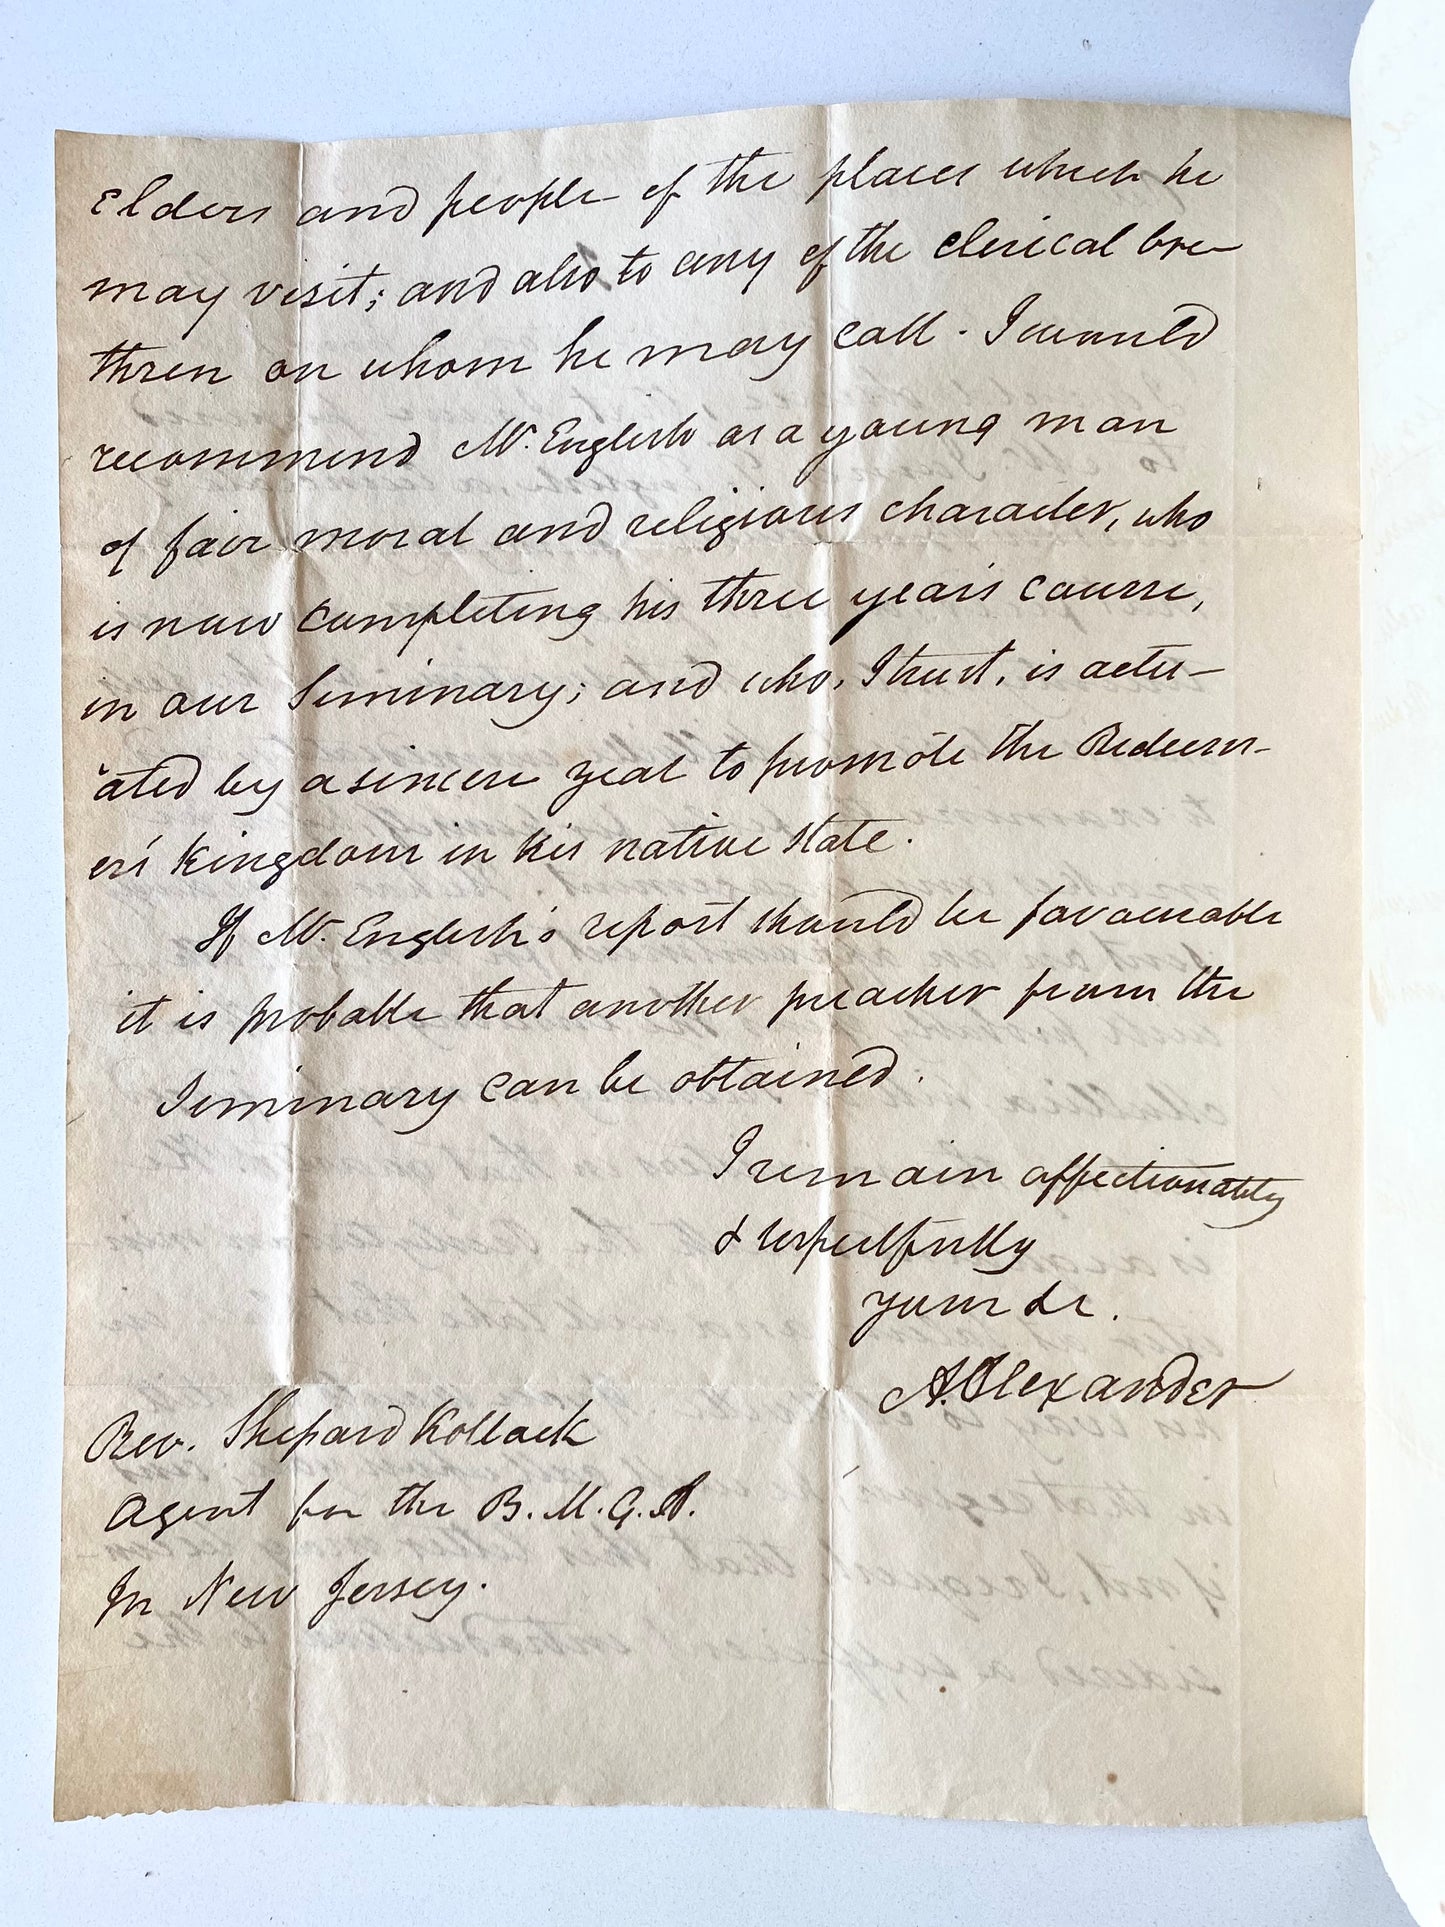 Elders and people of the places which he
may visit; and also to any of the clerical bre–
thren on whom he may call. I would
recommend Mr. English as a young man
of fair moral and religious character, who
is now completing his three years course,
in our Seminary; and who, I trust, is actu–
ated by a sincere zeal to promote the Redeem–
er's Kingdom in his native State.
If Mr. English's report should be favourable
it is probable that another preacher from the
Seminary can be obtained.
I remain affectionately
& respectfully
yours &c.
A. Alexander
Rev. Shepard Kollock
Agent for the B. M. G. A.
In New Jersey.